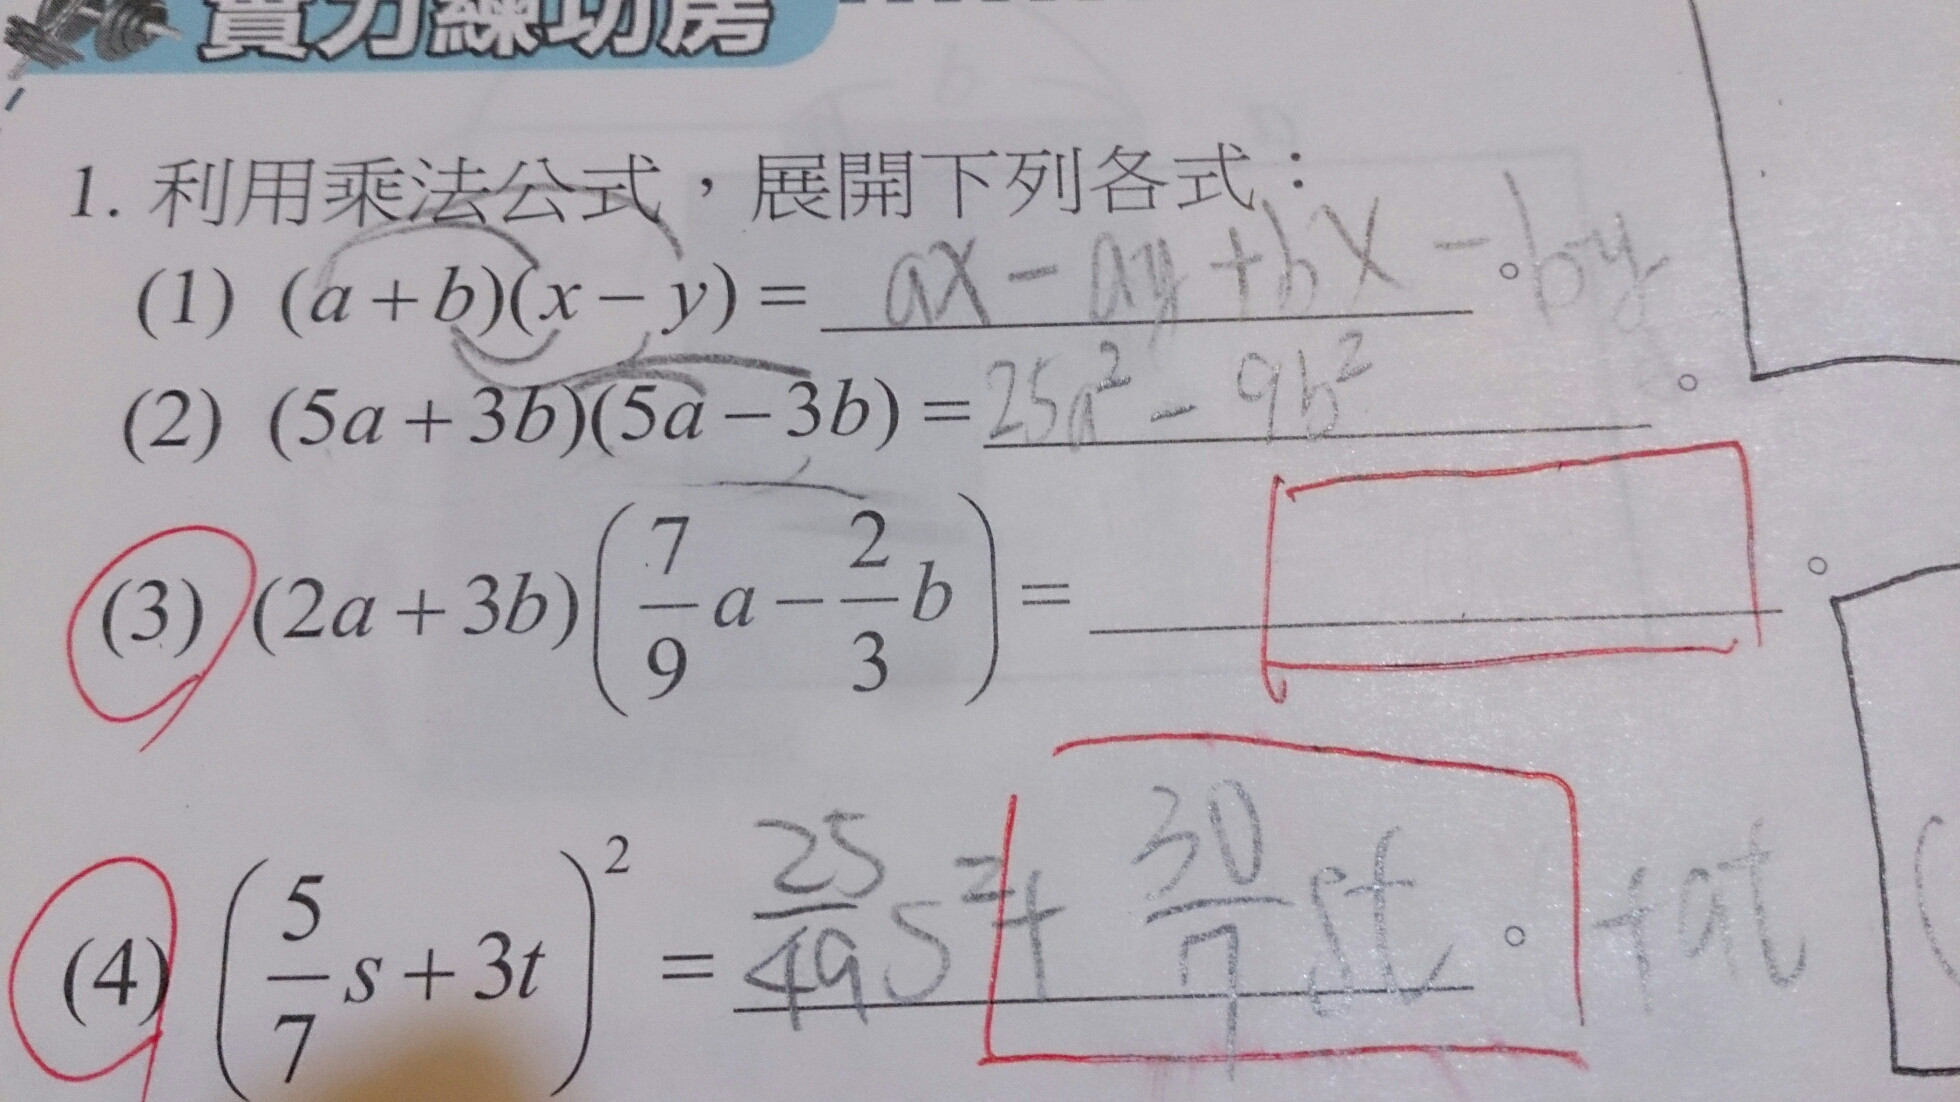 實力練功房
1. 利用乘法公式，展開下列各式：
(1) (a+b)(x−y)= ax − ay + bx − by 。
(2) (5a+3b)(5a−3b)= 25a² − 9b² 。
(3) (2a+3b)(7/9 a − 2/3 b)= 。
(4) (5/7 s+3t)² = 25/49 s² + 30/7 st 。 + 9t